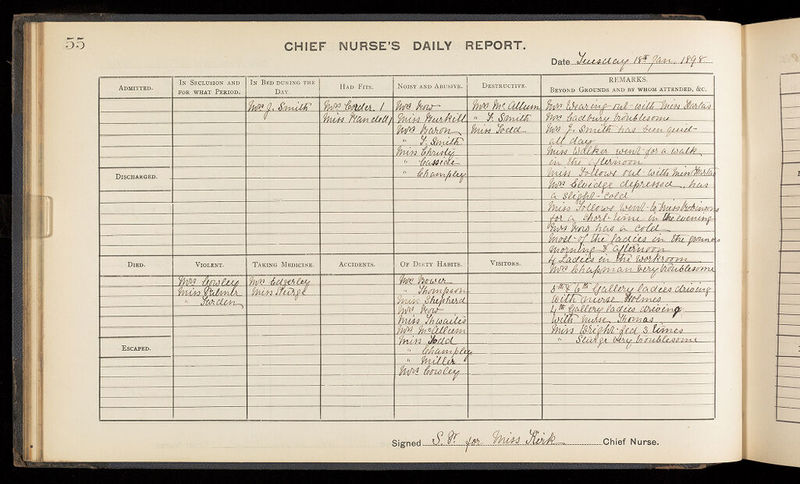 55
CHIEF NURSE'S DAILY REPORT.
Date Tuesday 18th Jan. 1898
ADMITTED.
IN SECLUSION AND FOR WHAT PERIOD.
IN BED DURING THE DAY.
HAD FITS.
NOISY AND ABUSIVE.
DESTRUCTIVE.
REMARKS.
BEYOND GROUNDS AND BY WHOM ATTENDED, &C.
Mrs J. Smith
Mrs Corder 1
Miss Randell 1
Mrs How
Miss
Mrs Baron
" F. Smith
Miss Christy
" Cassids
" Champley
Mrs McCallum
" F. Smith
Miss Todd
Mrs Wearing out with Miss
Mrs Cadbury troublesome
Mrs J. Smith has been quiet
all day
Miss Walker went for a walk
in the afternoon
Miss Follows out with Miss
Mrs Elvidge depressed, has
a slight cold
Miss Follows went to Miss Robinsons
for a short time in the evening
Mrs How has a cold
most of the ladies in the grounds
morning & afternoon
4 Ladies in the workroom
Mrs Chapman very troublesome
5th & 6th Gallery ladies driving
with nurse Holmes
4th Gallery ladies driving
with nurse Thomas
Miss Wright fed 3 times
" Sturge very troublesome
DISCHARGED.
DIED.
VIOLENT.
TAKING MEDICINE.
ACCIDENTS.
OF DIRTY HABITS.
VISITORS.
Mrs Cowley
Miss Palmer
" Jarden
Mrs Edgerley
Miss Sturge
Mrs Bower
" Thompson
Miss Shepherd
Mrs How
Miss Thwaites
Mrs McCallum
Miss Todd
" Champley
" Miller
Mrs Cowley
ESCAPED.
Signed S. P. for Miss Kirk Chief Nurse.